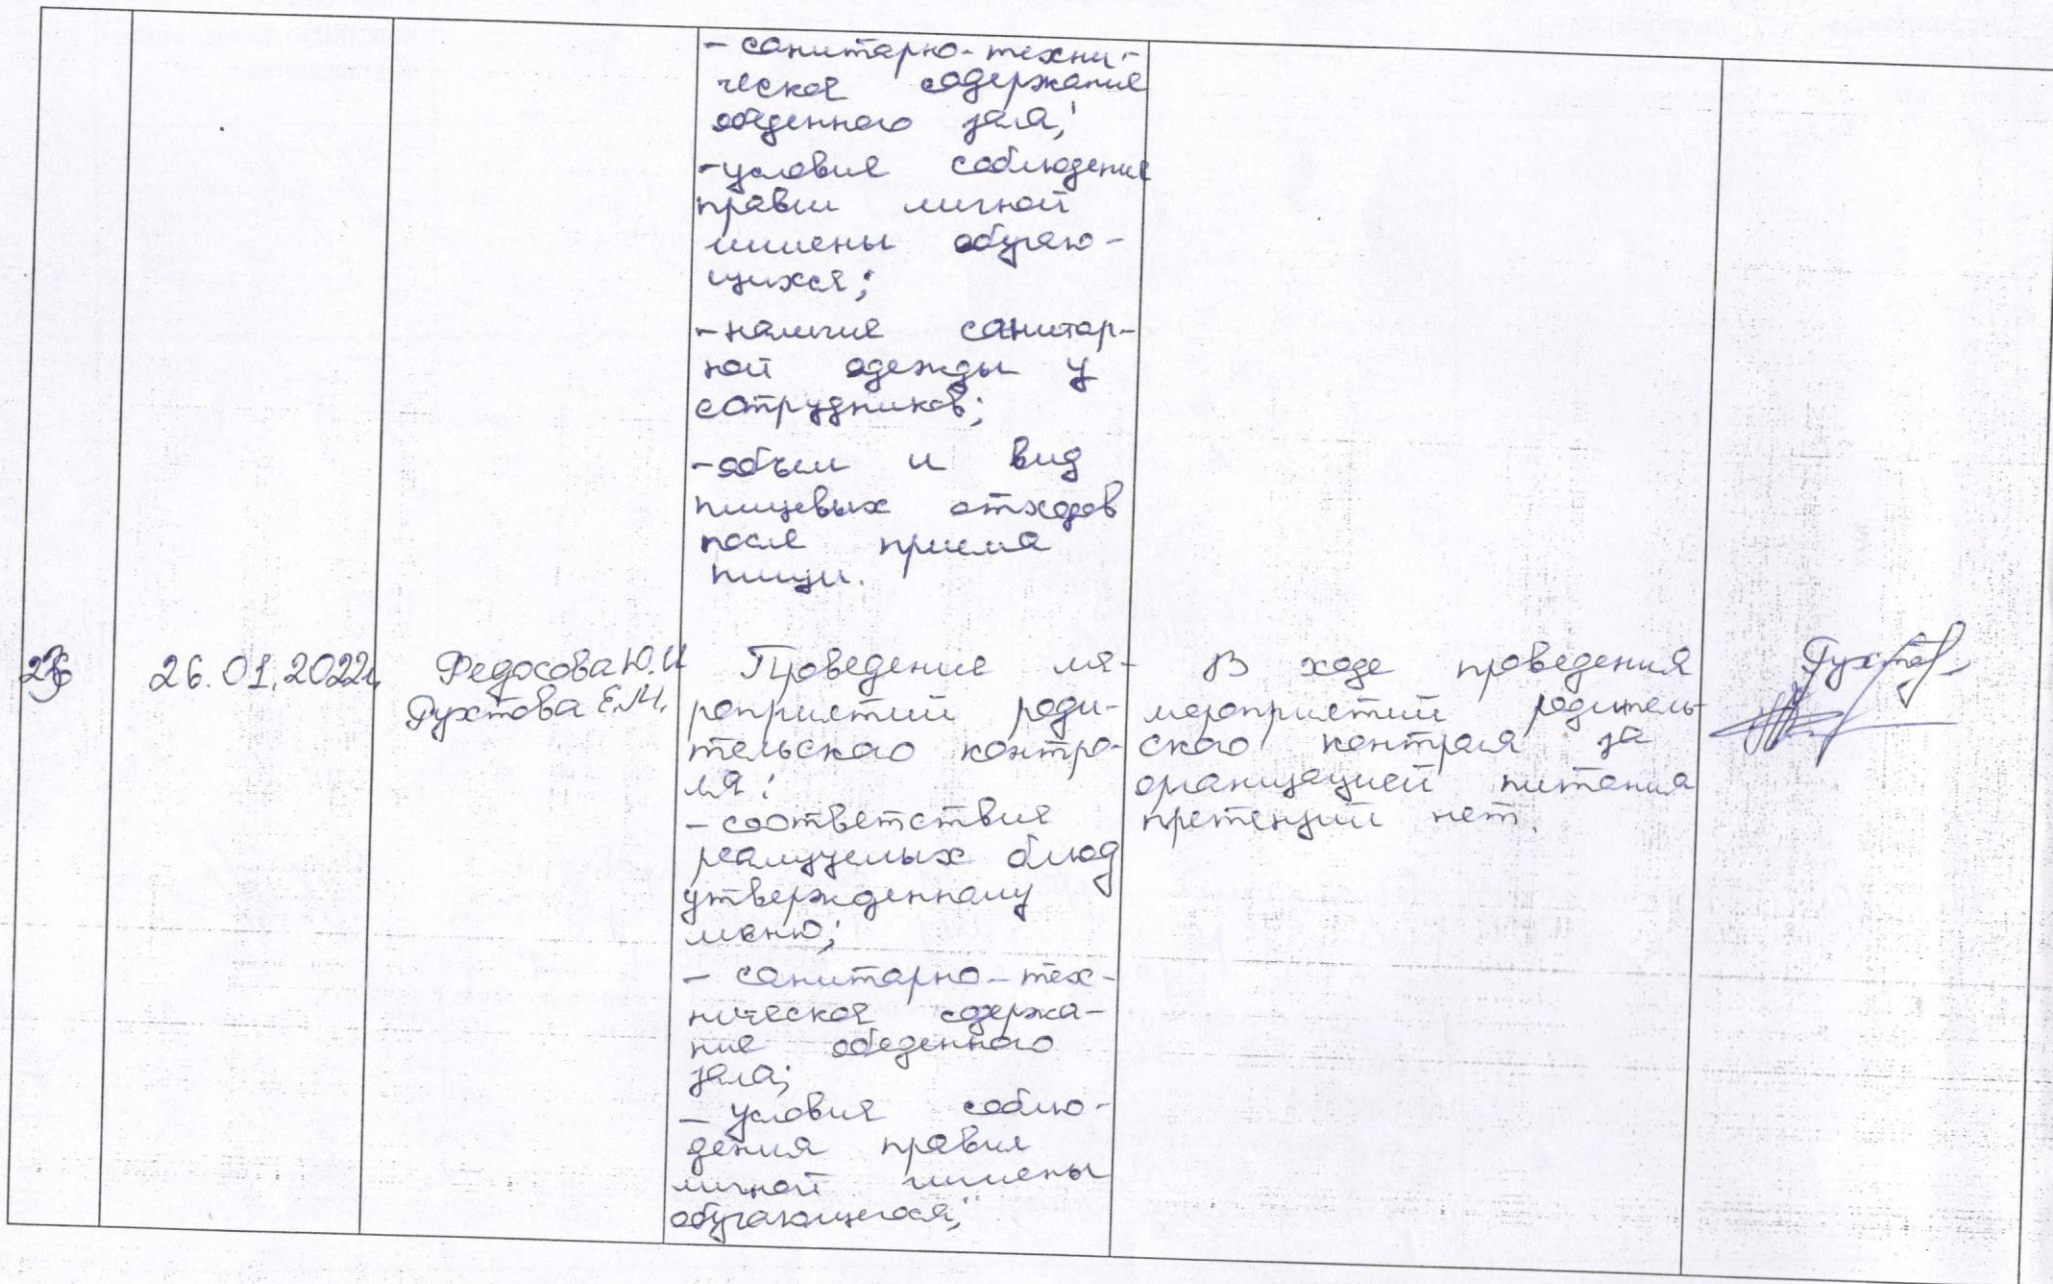 - санитарно-техни-
ческое содержание
обеденного зала;
- условие соблюдение
правил личной
гигиены обучаю-
щихся;
- наличие санитар-
ной одежды у
сотрудников;
- объем и вид
пищевых отходов
после приема
пищи.
26.01.2022г.
Федосова Ю.И
Духтова Е.М.
Проведение ме-
роприятий роди-
тельского контро-
ля:
- соответствия
реализуемых блюд
утвержденному
меню;
- санитарно-тех-
ническое содержа-
ние обеденного
зала;
- условия соблю-
дения правил
личной гигиены
обучающегося;
В ходе проведения
мероприятий родитель-
ского контроля за
организацией питания
претензий нет.